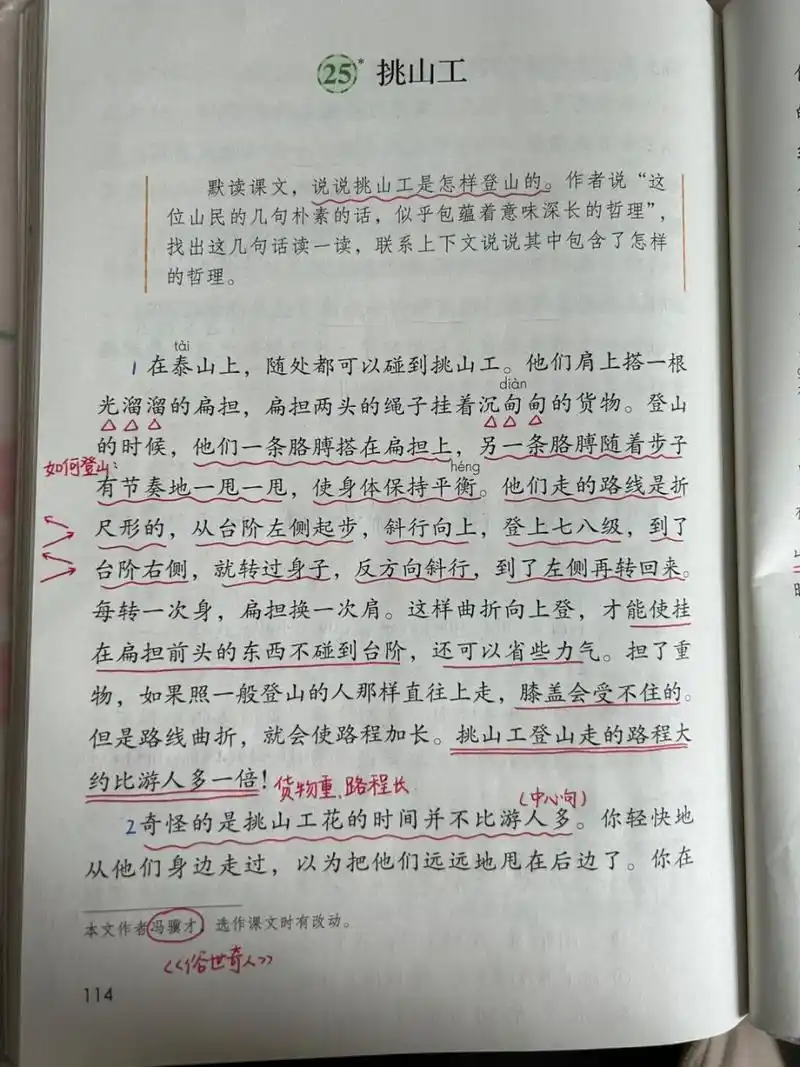 25* 挑山工
默读课文，说说挑山工是怎样登山的。作者说“这
位山民的几句朴素的话，似乎包蕴着意味深长的哲理”，
找出这几句话读一读，联系上下文说说其中包含了怎样
的哲理。
tài
1 在泰山上，随处都可以碰到挑山工。他们肩上搭一根
diàn
光溜溜的扁担，扁担两头的绳子挂着沉甸甸的货物。登山
的时候，他们一条胳膊搭在扁担上，另一条胳膊随着步子
如何登山：
héng
有节奏地一甩一甩，使身体保持平衡。他们走的路线是折
尺形的，从台阶左侧起步，斜行向上，登上七八级，到了
台阶右侧，就转过身子，反方向斜行，到了左侧再转回来。
每转一次身，扁担换一次肩。这样曲折向上登，才能使挂
在扁担前头的东西不碰到台阶，还可以省些力气。担了重
物，如果照一般登山的人那样直往上走，膝盖会受不住的。
但是路线曲折，就会使路程加长。挑山工登山走的路程大
约比游人多一倍！货物重、路程长
（中心句）
2奇怪的是挑山工花的时间并不比游人多。你轻快地
从他们身边走过，以为把他们远远地甩在后边了。你在
本文作者冯骥才，选作课文时有改动。
《俗世奇人》
114